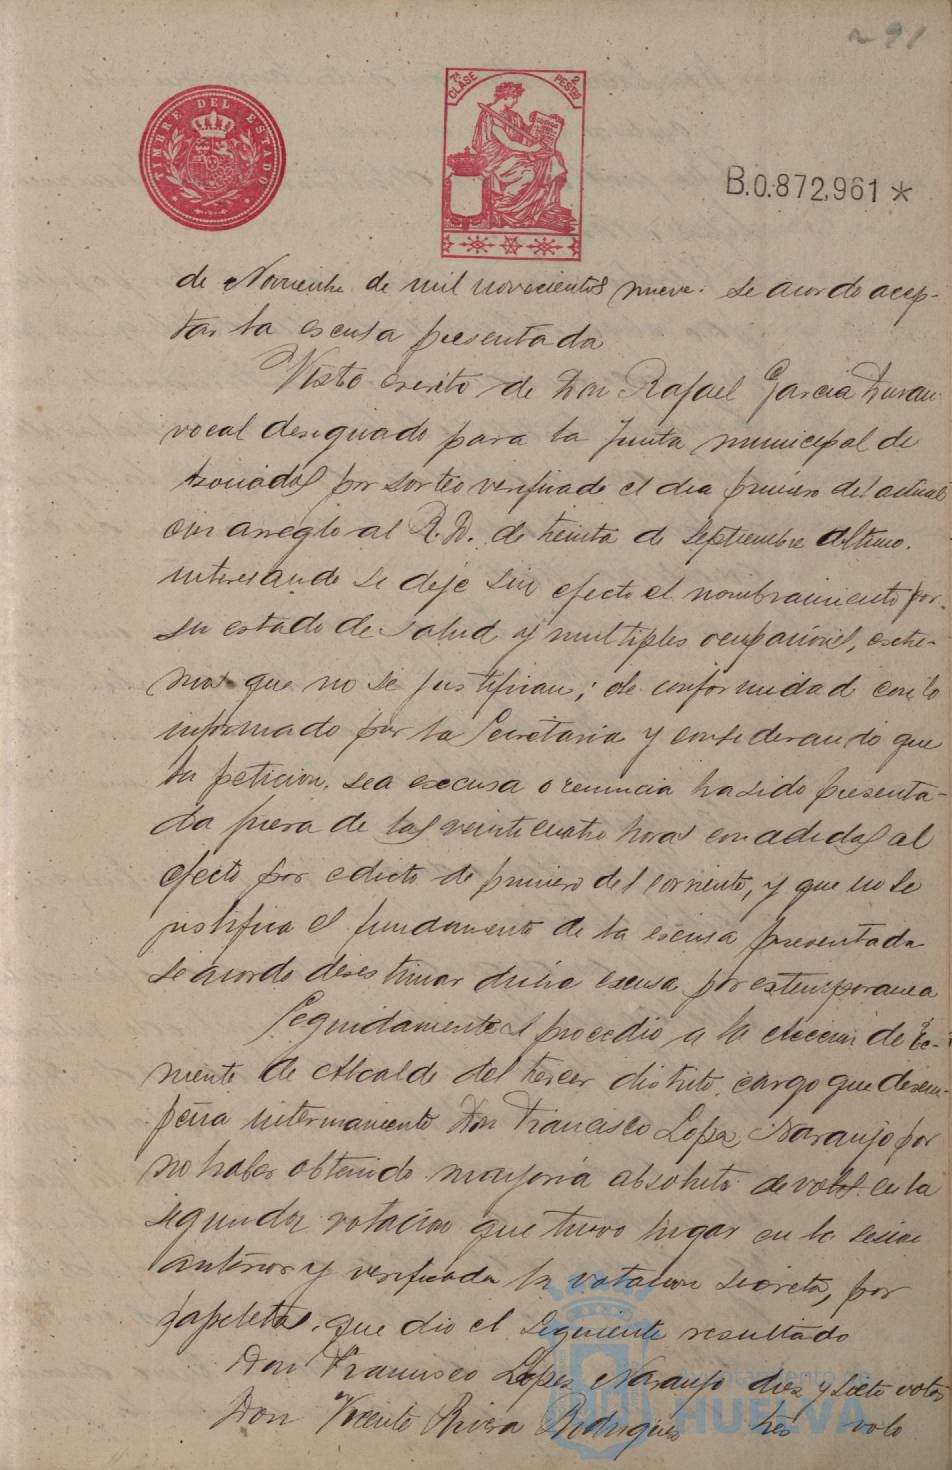 291
TIMBRE DEL ESTADO
7ª CLASE 2 PESTAS
B.0.872,961 *
de Noviembre de mil novecientos nueve. se acordo acep-
tar la escusa presentada
Visto escrito de Don Rafael Garcia Duran
vocal designado para la Junta municipal de
asociados por sorteo verificado el dia primero del actual
con arreglo al R.D. de treinta de Septiembre último.
interesando se deje sin efecto el nombramiento por
su estado de salud y multiples ocupaciones, estre-
mos que no se justifican; de conformidad con lo
informado por la Secretaria y considerando que
la peticion, sea escusa o renuncia ha sido presenta-
da fuera de las veinticuatro horas concedidas al
efecto por edicto de primero del corriente, y que no se
justifica el fundamento de la escusa presentada
se acordo desestimar dicha excusa por extemporanea
Seguidamente se procedio a la eleccion de Te-
niente de Alcalde del tercer distrito, cargo que desem-
peña interinamente Don Francisco Lopez Naranjo por
no haber obtenido mayoria absoluta de votos en la
segunda votacion que tuvo lugar en la sesion
anterior y verificada la votacion secreta, por
papeletas, que dio el siguiente resultado
Don Francisco Lopez Naranjo diez y siete votos
Don Vicente Rivera Rodriguez tres voto
Ayuntamiento de
HUELVA